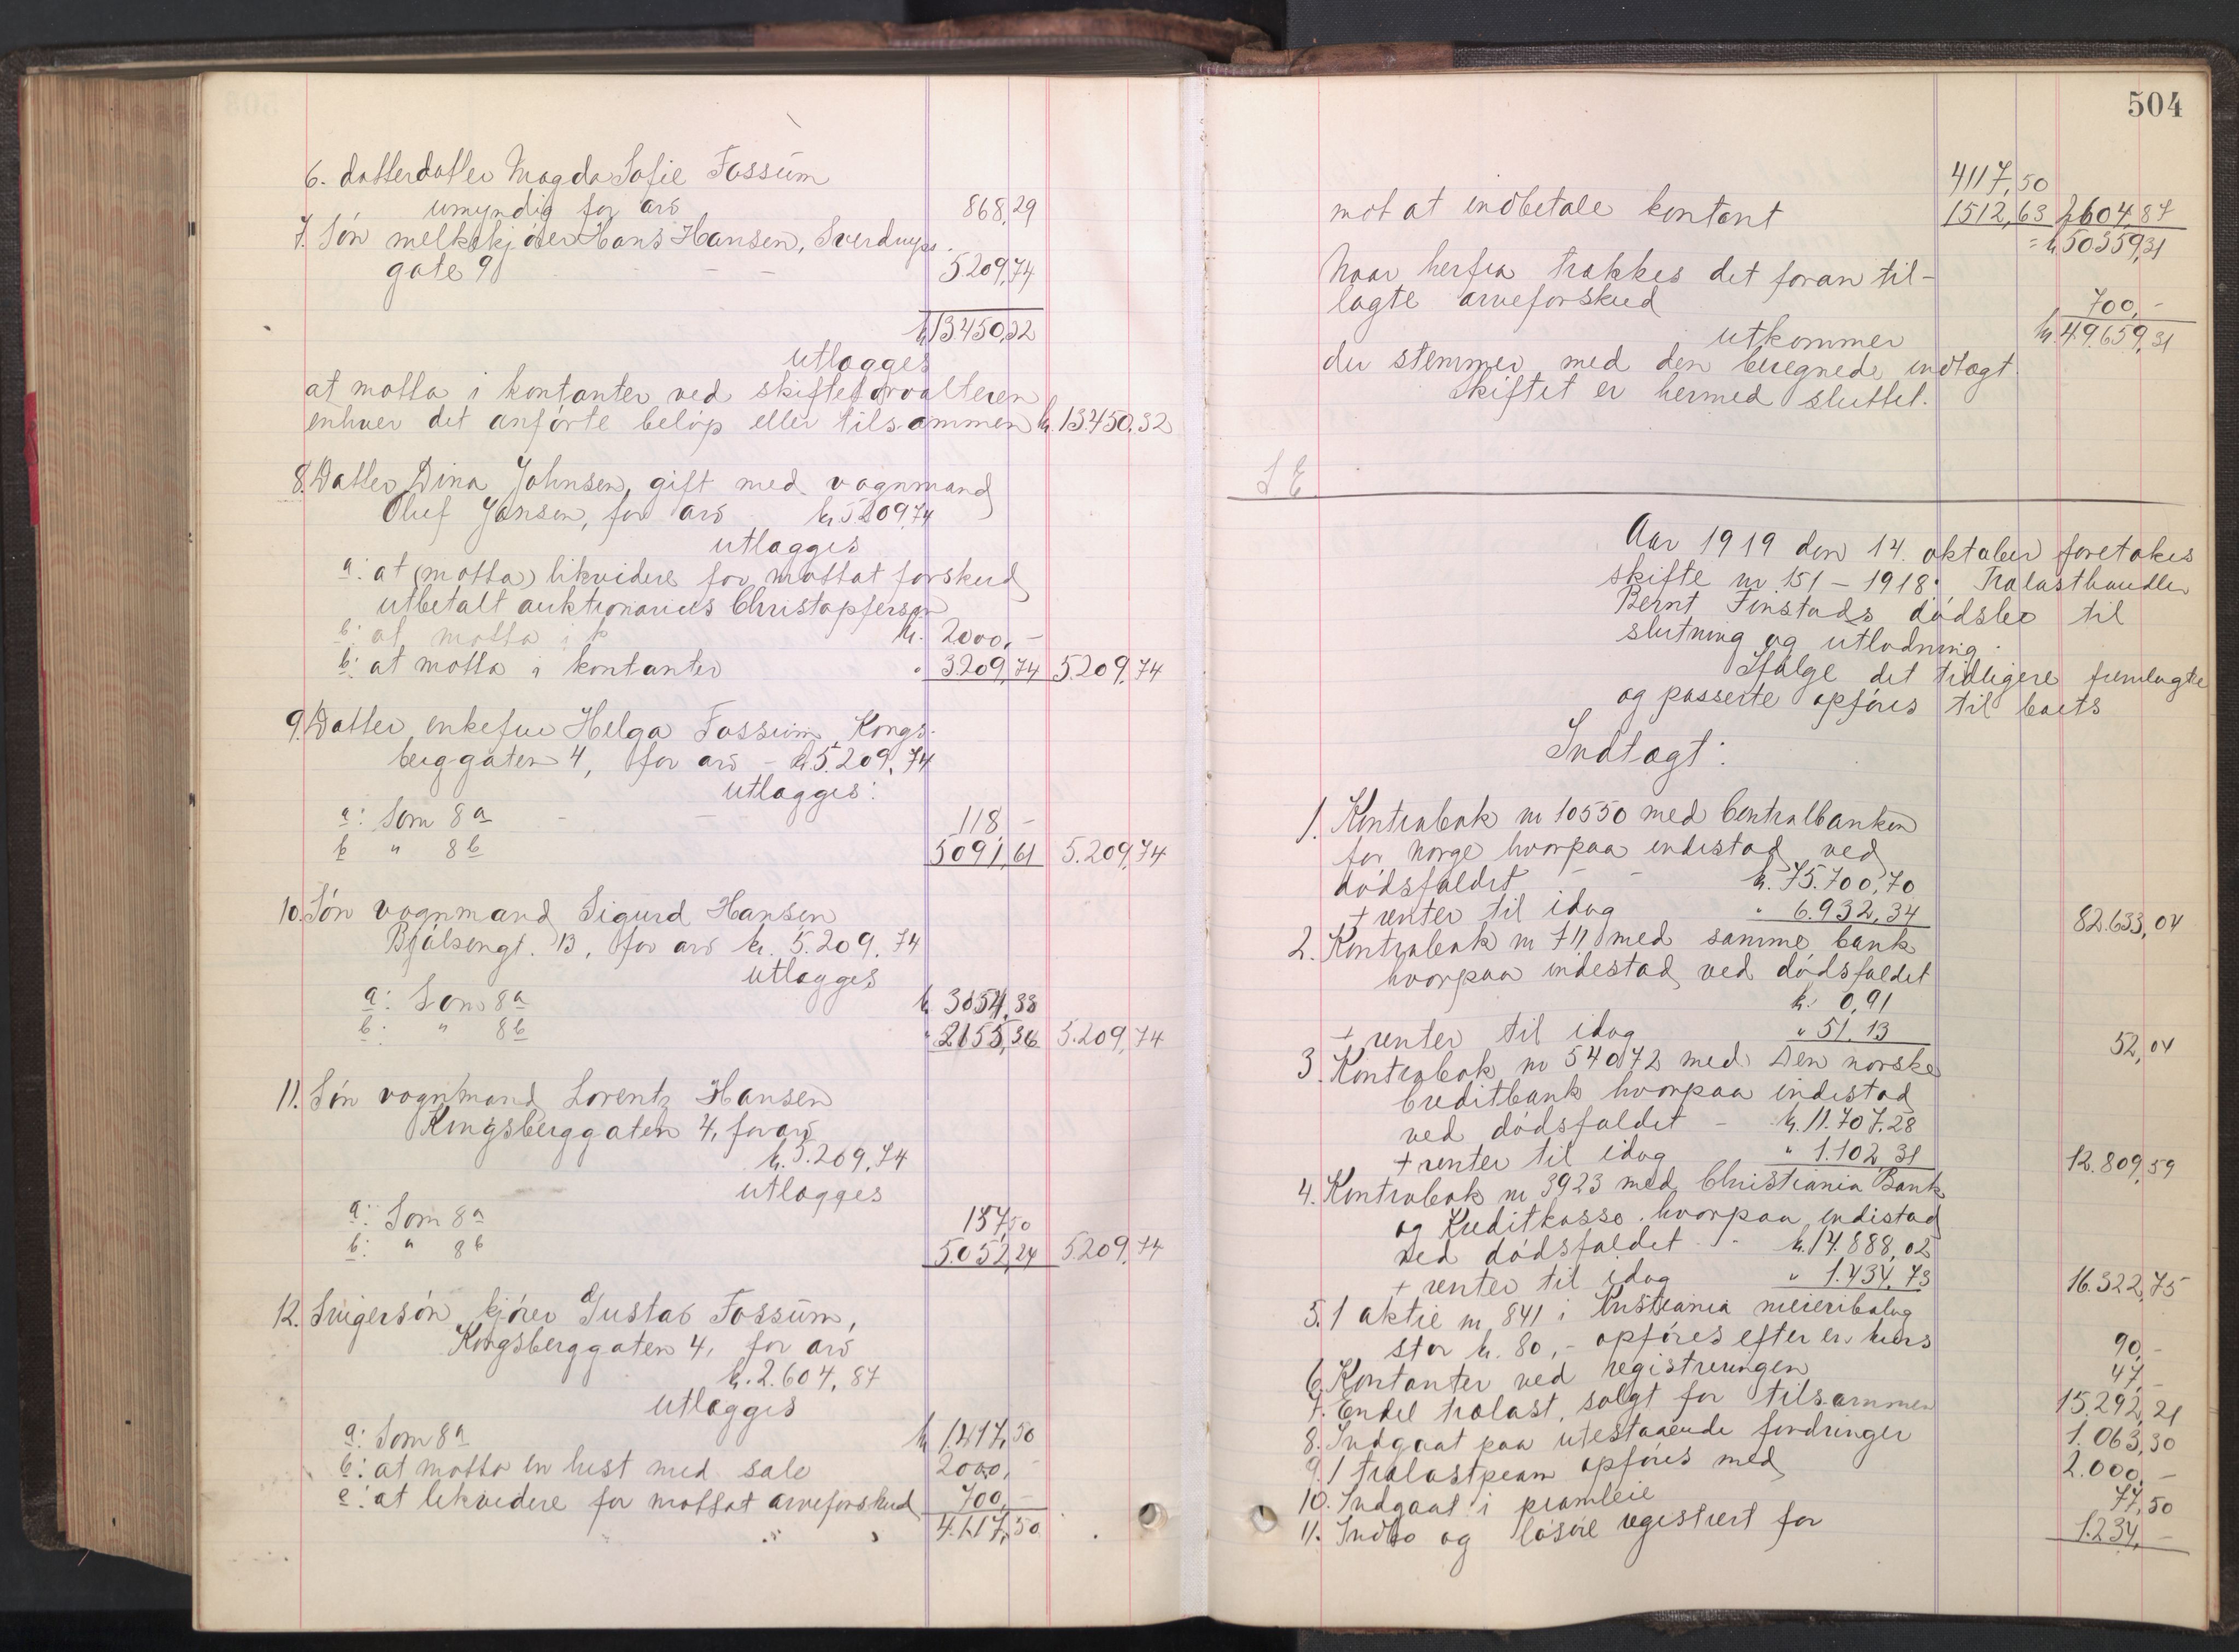 6. datterdatter Magda Sofie Fossum
umyndig for arv 868,29
7. Søn melkekjører Hans Hansen, Sverdrups
gate 9 - - - 5209,74
kr 13.450,32
utlægges
at motta i kontanter ved skifteforvalteren
enhver det anførte beløp eller tilsammen kr. 13.450,32
8. Datter Dina Johnsen, gift med vognmand
Oluf Jansen, for arv kr 5.209,74
utlægges
a: at (motta) likvidere for mottat forskud
utbetalt auktionarius Christophersen
b: at motta i k kr. 2000,-
b: at motta i kontanter " 3.209,74 5.209,74
9. Datter, enkefru Helga Fossum, Kongs-
berggaten 4, for arv - kr 5.209,74
utlægges:
a: Som 8a - - 118,-
b " 8b 5091,61 5.209,74
10. Søn vognmand Sigurd Hansen
Bjølsengt. 13, for arv kr. 5.209,74
utlægges
a: Som 8a kr 3054,38
b: " 8b " 2155,36 5.209,74
11. Søn vognmand Lorentz Hansen
Kongsberggaten 4, for arv
kr. 5.209,74
utlægges
a: Som 8a 157,50
b: " 8b 5.052,24 5.209,74
12. Svigersøn, kjører Gustav Fossum,
Kongsberggaten 4, for arv
kr. 2.604,87
utlægges
a: Som 8a kr 1.417,50
b: at motta en hest med sale 2000,-
c: at likvidere for mottat arveforskud 700,-
4.117,50
504
4117,50
mot at indbetale kontant 1512,63 2604,87
= kr 50359,31
Naar herfra trækkes det foran til-
lagte arveforskud 700,-
utkommer kr. 49.659,31
der stemmer med den beregnede indtægt.
Skiftet er hermed sluttet.
S E
Aar 1919 den 14. oktober foretokes
skifte nr 151 - 1918: Trælasthandler
Bernt Finstads dødsbo til
slutning og utlodning.
Ifølge det tidligere fremlagte
og passerte opføres til boets
Indtægt:
1. Kontrabok nr 10550 med Centralbanken
for Norge hvorpaa indestod ved
dødsfaldet - - kr. 75.700,70
+ renter til idag " 6.932,34 82.633,04
2. Kontrabok nr 711 med samme bank
hvorpaa indestod ved dødsfaldet
kr. 0,91
+ renter til idag " 51,13 52,04
3. Kontrabok nr 54072 med Den norske
Creditbank hvorpaa indestod
ved dødsfaldet - kr. 11.707,28
+ renter til idag " 1.102,31 12.809,59
4. Kontrabok nr 3923 med Christiania Bank
og Kreditkasse. hvorpaa indestod
ved dødsfaldet - kr. 14.888,02
+ renter til idag " 1.434,73 16.322,75
5. 1 aktie nr 841 i Kristiania meieribolag
stor kr. 80,- opføres efter en kurs 90,-
6. Kontanter ved registreringen 47,-
7. Endel trælast, solgt for tilsammen 15.292,21
8. Indgaat paa utestaaende fordringer 1.063,30
9. 1 trælastpram opføres med 2.000,-
10. Indgaat i pramleie 77,50
11. Indbo og løsøre registrert for 1.234,-